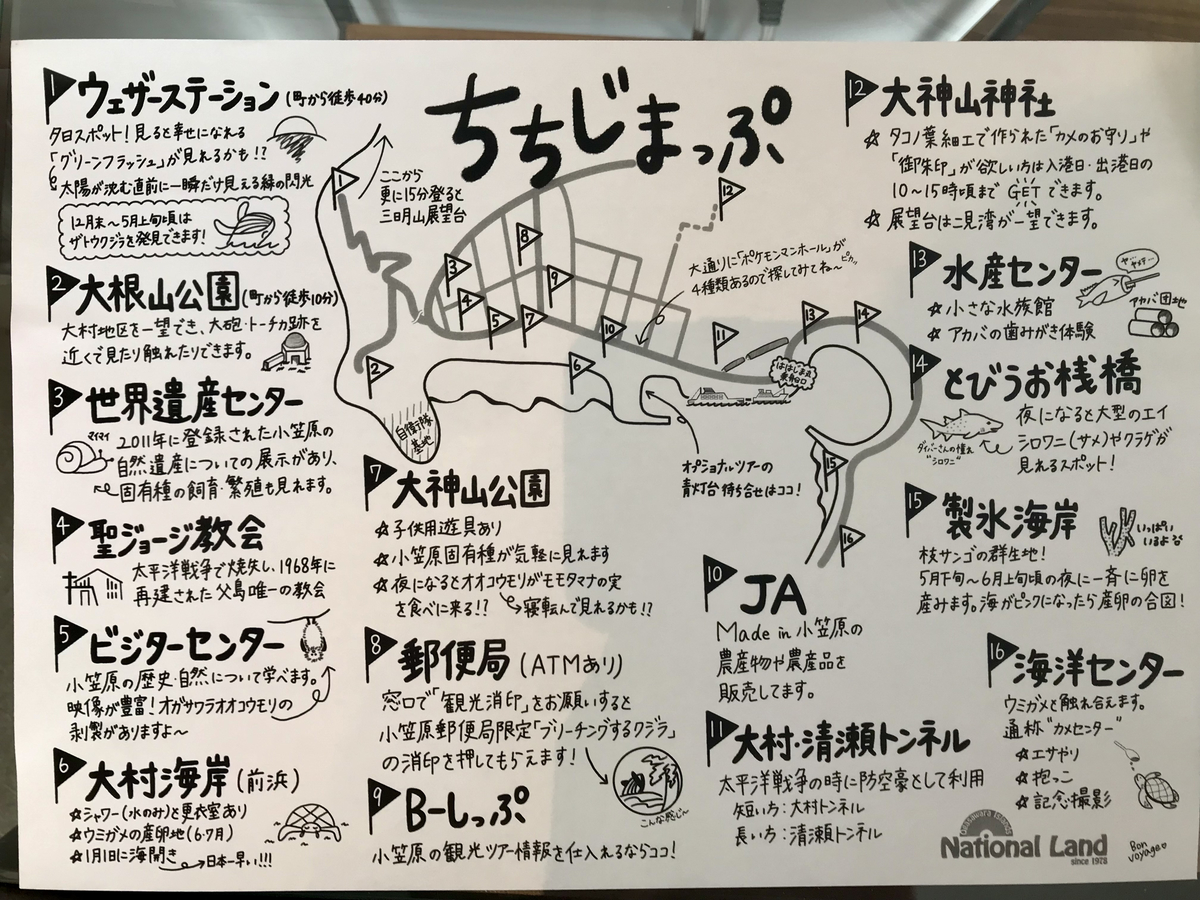 ちちじまっぷ
1 ウェザーステーション (町から徒歩40分)
夕日スポット!見ると幸せになれる
「グリーンフラッシュ」が見れるかも!?
太陽が沈む直前に一瞬だけ見える緑の閃光
12月末〜5月上旬頃は
ザトウクジラを発見できます!
2 大根山公園 (町から徒歩10分)
大村地区を一望でき、大砲・トーチカ跡を
近くで見たり触れたりできます。
3 世界遺産センター
マイマイ
2011年に登録された小笠原の
自然遺産についての展示があり、
固有種の飼育・繁殖も見れます。
4 聖ジョージ教会
太平洋戦争で焼失し、1968年に
再建された父島唯一の教会
5 ビジターセンター
小笠原の歴史・自然について学べます。
映像が豊富!オガサワラオオコウモリの
剥製がありますよ〜
6 大村海岸 (前浜)
☆シャワー(水のみ)と更衣室あり
☆ウミガメの産卵地(6・7月)
☆1月1日に海開き
日本一早い!!!
ここから
更に15分登ると
三日月山展望台
1
2
3
4
5
6
7
8
9
10
11
12
13
14
15
16
大通りに「ポケモンマンホール」が
4種類あるので探してみてね〜
ピカッ
ははじま丸
乗船口
自衛隊
基地
オプショナルツアーの
青灯台待ち合せはココ!
7 大神山公園
☆子供用遊具あり
☆小笠原固有種が気軽に見れます
☆夜になるとオオコウモリがモモタマナの実
を食べに来る!?
寝転んで見れるかも!?
8 郵便局 (ATMあり)
窓口で「観光消印」をお願いすると
小笠原郵便局限定「ブリーチングするクジラ」
の消印を押してもらえます!
こんな感じ〜
9 B-しっぷ
小笠原の観光ツアー情報を仕入れるならココ!
10 JA
Made in 小笠原の
農産物や農産品を
販売してます。
11 大村・清瀬トンネル
太平洋戦争の時に防空豪として利用
短い方:大村トンネル
長い方:清瀬トンネル
12 大神山神社
☆タコノ葉細工で作られた「カメのお守り」や
「御朱印」が欲しい方は入港日・出港日の
10〜15時頃までGETできます。
☆展望台は二見湾が一望できます。
13 水産センター
☆小さな水族館
☆アカバの歯みがき体験
アカバ団地
14 とびうお桟橋
夜になると大型のエイ
シロワニ(サメ)やクラゲが
見れるスポット!
ダイバーさんの憧れ
"シロワニ"
15 製氷海岸
いっぱい
いるよな
枝サンゴの群生地!
5月下旬〜6月上旬頃の夜に一斉に卵を
産みます。海がピンクになったら産卵の合図!
16 海洋センター
ウミガメを触れ合えます。
通称"カメセンター"
☆エサやり
☆抱っこ
☆記念撮影
Ogasawara Islands
National Land
since 1978
Bon
voyage♡